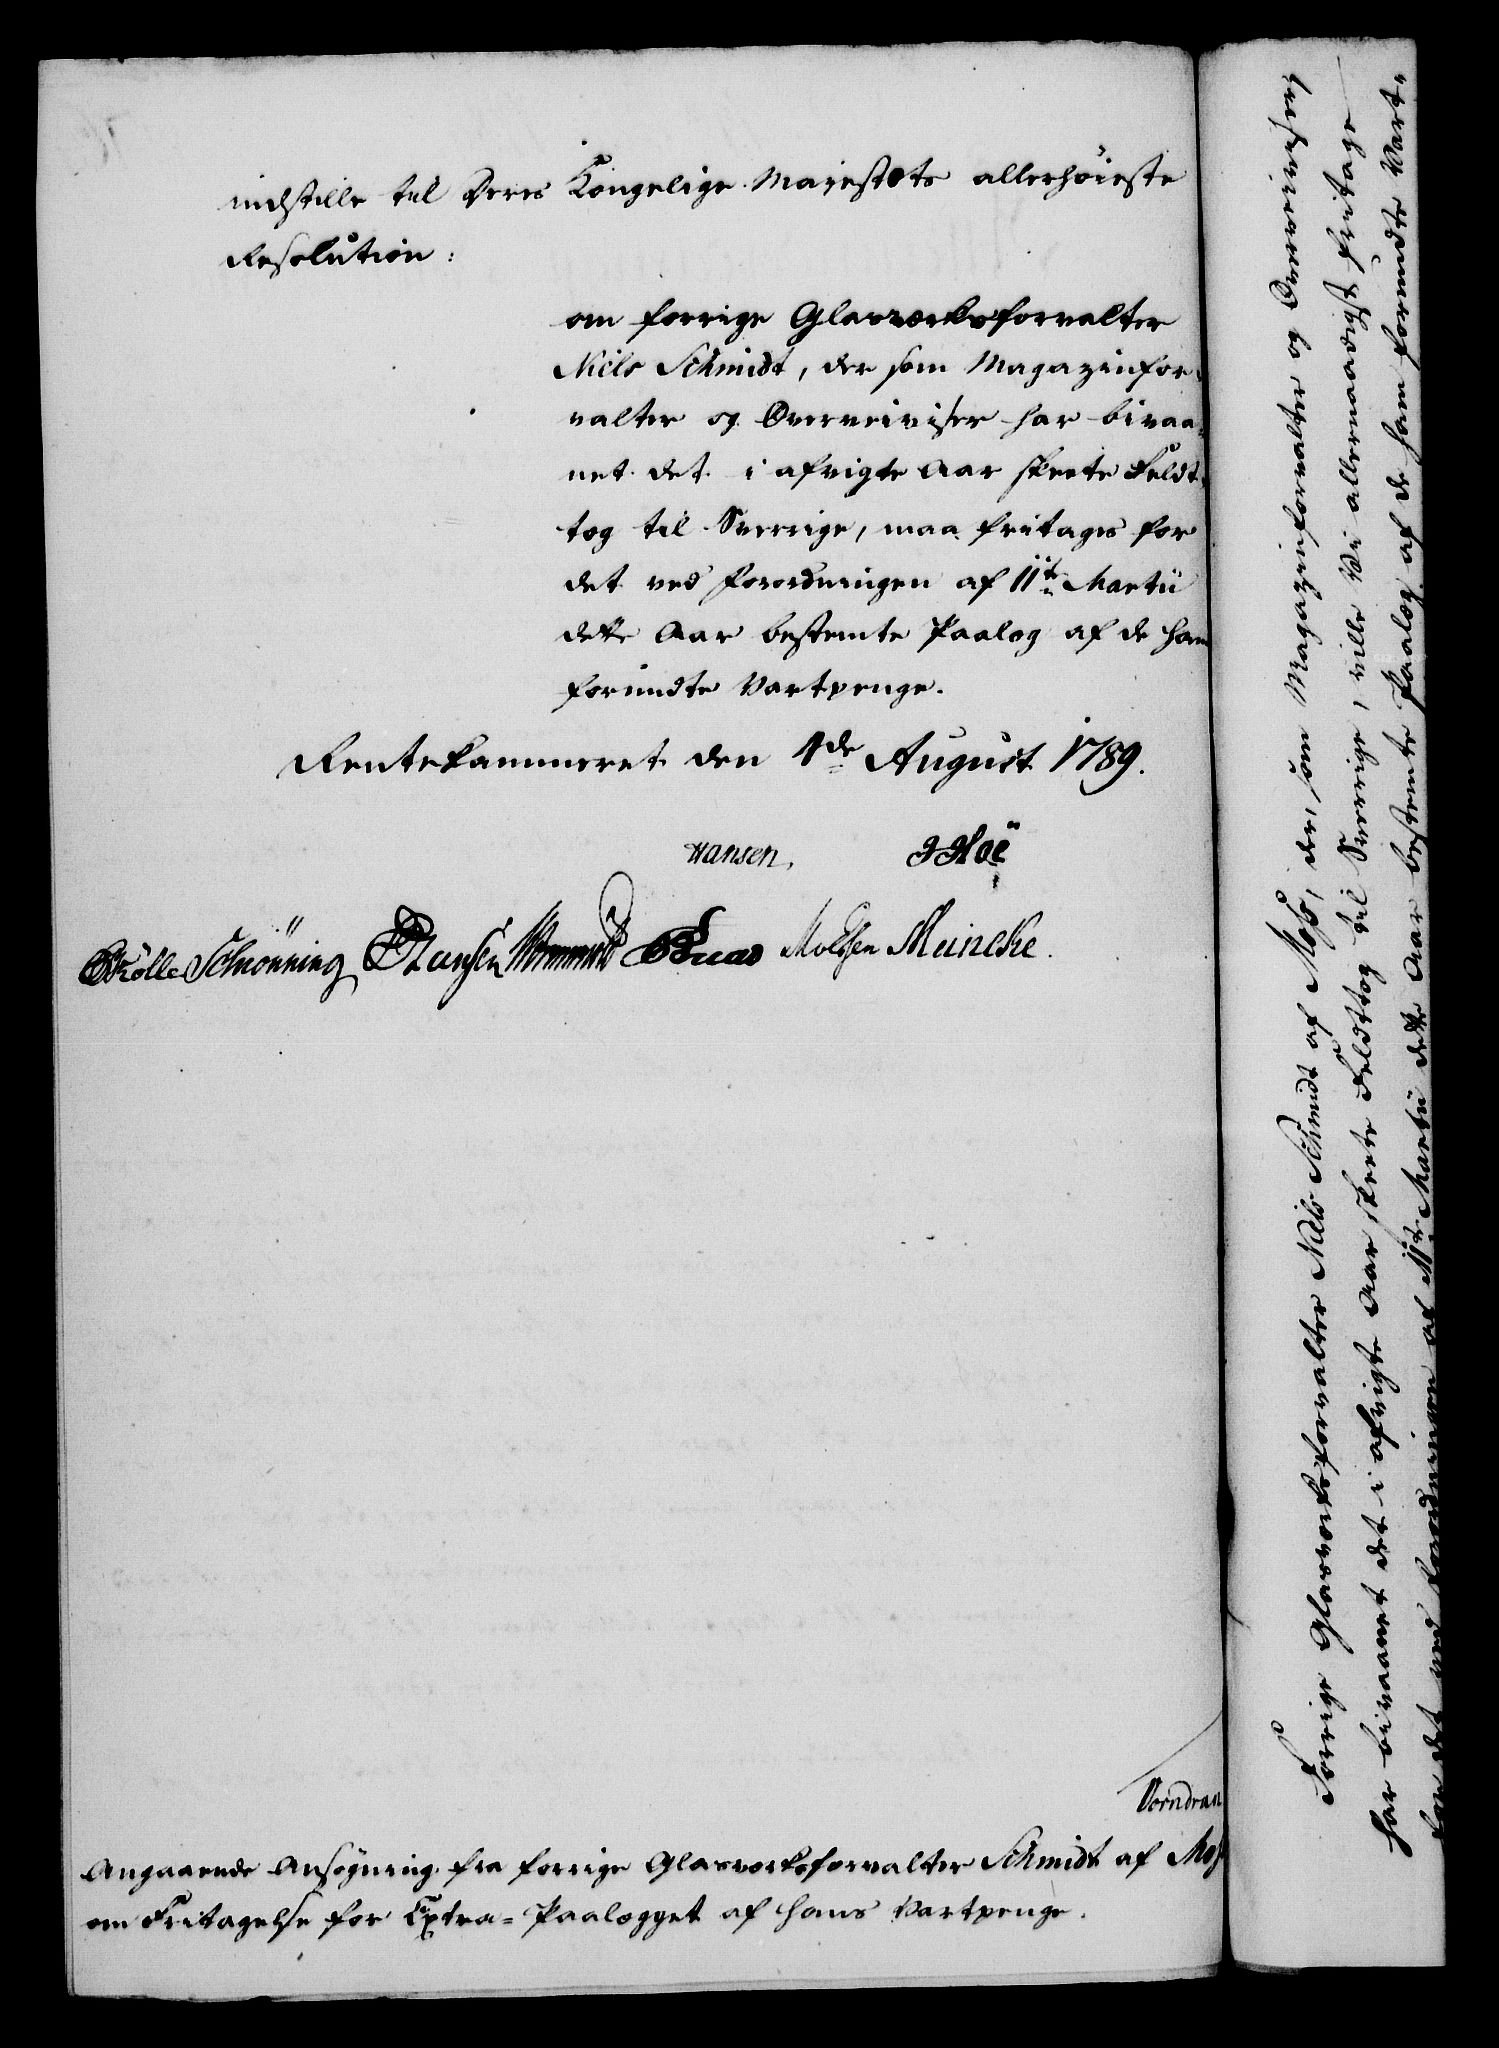 indstille til Deres Kongelige Majestæts allerhöieste
Resolution:
om forrige Glasværksforvalter
Niels Schmidt, der som Magazinfor-
valter og Overveiviser har bivaa-
net det i afvigte Aar skeete Feldt-
tog til Sverrige, maa fritages for
det ved Forordningen af 11te Martii
dette Aar bestemte Paalæg af de ham
forundte Vartpenge.
Rentekammeret den 4de August 1789.
Hansen. J Hoë
Schrönning Hansen Molssen Meincke.
Vorndran
Angaaende Ansøgning fra forrige Glasværksforvalter Schmidt af Moss
om Fritagelse for Extra-Paalægget af hans Vartpenge.
Forrige Glasværksforvalter Niels Schmidt af Moss, der, som Magazinforvalter og Overveiviser,
har bivaanet det i afvigte Aar skeete Feldttog til Sverrige, ville Vi allernaadigst fritage
for det ved Forordningen af 11te Martii dette Aar bestemte Paalæg af de ham forundte Vart-